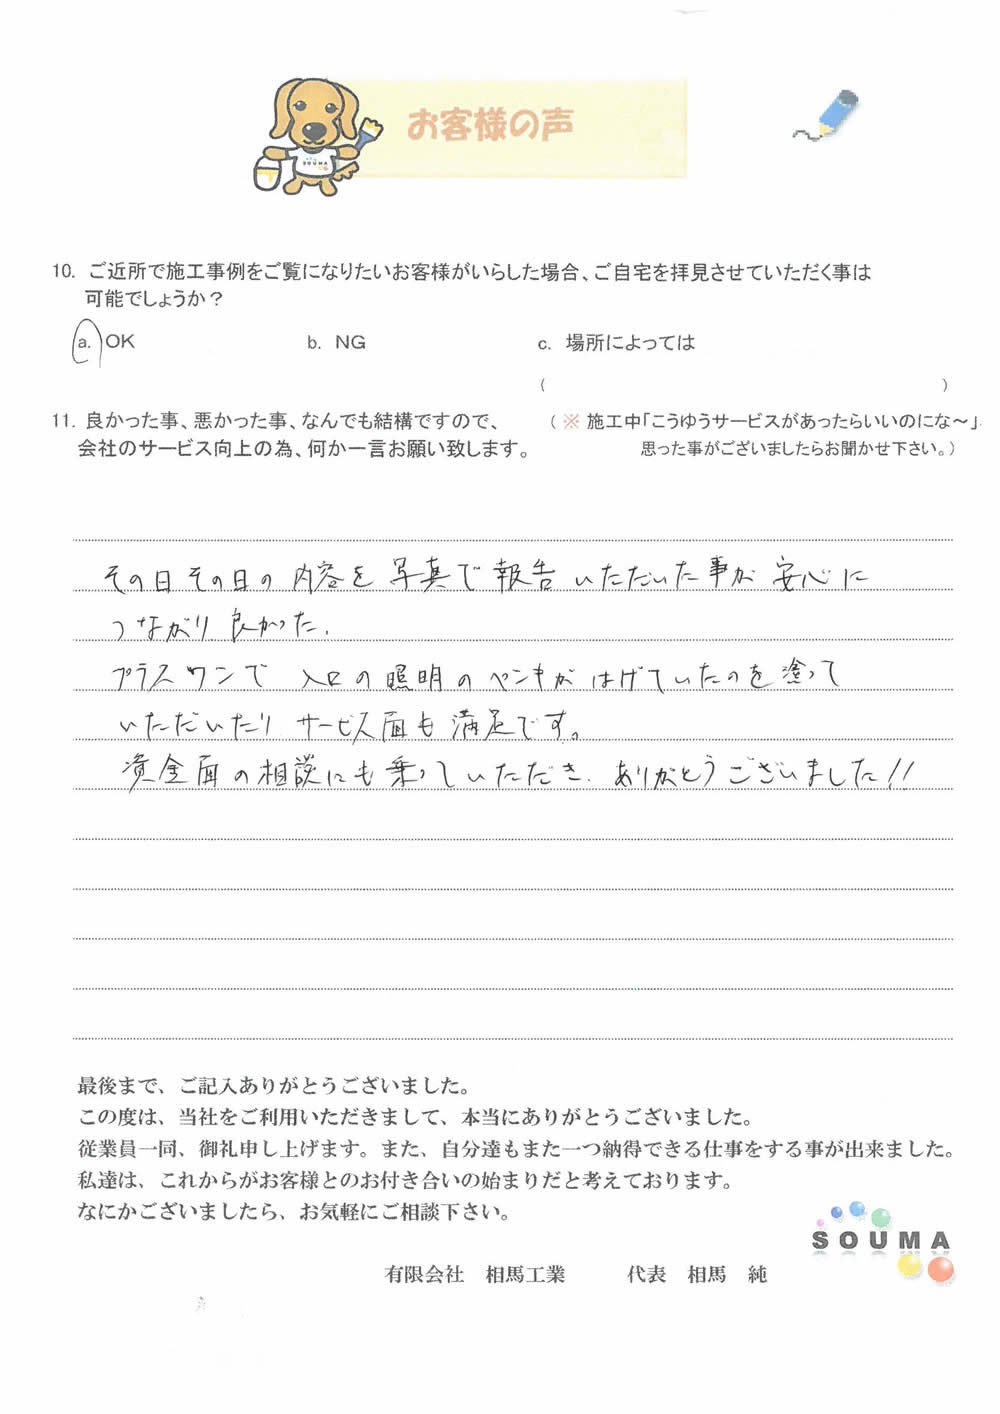 お客様の声
SOUMA
10. ご近所で施工事例をご覧になりたいお客様がいらした場合、ご自宅を拝見させていただく事は
可能でしょうか？
a. OK b. NG c. 場所によっては
( )
11. 良かった事、悪かった事、なんでも結構ですので、 (※ 施工中「こうゆうサービスがあったらいいのにな～」
会社のサービス向上の為、何か一言お願い致します。 思った事がございましたらお聞かせ下さい。)
その日その日の内容を写真で報告いただいた事が安心に
つながり良かった.
プラスワンで入口の照明のペンキがはげていたのを塗って
いただいたりサービス面も満足です。
資金面の相談にも乗っていただき. ありがとうございました!!
最後まで、ご記入ありがとうございました。
この度は、当社をご利用いただきまして、本当にありがとうございました。
従業員一同、御礼申し上げます。また、自分達もまた一つ納得できる仕事をする事が出来ました。
私達は、これからがお客様とのお付き合いの始まりだと考えております。
なにかございましたら、お気軽にご相談下さい。
SOUMA
有限会社 相馬工業 代表 相馬 純